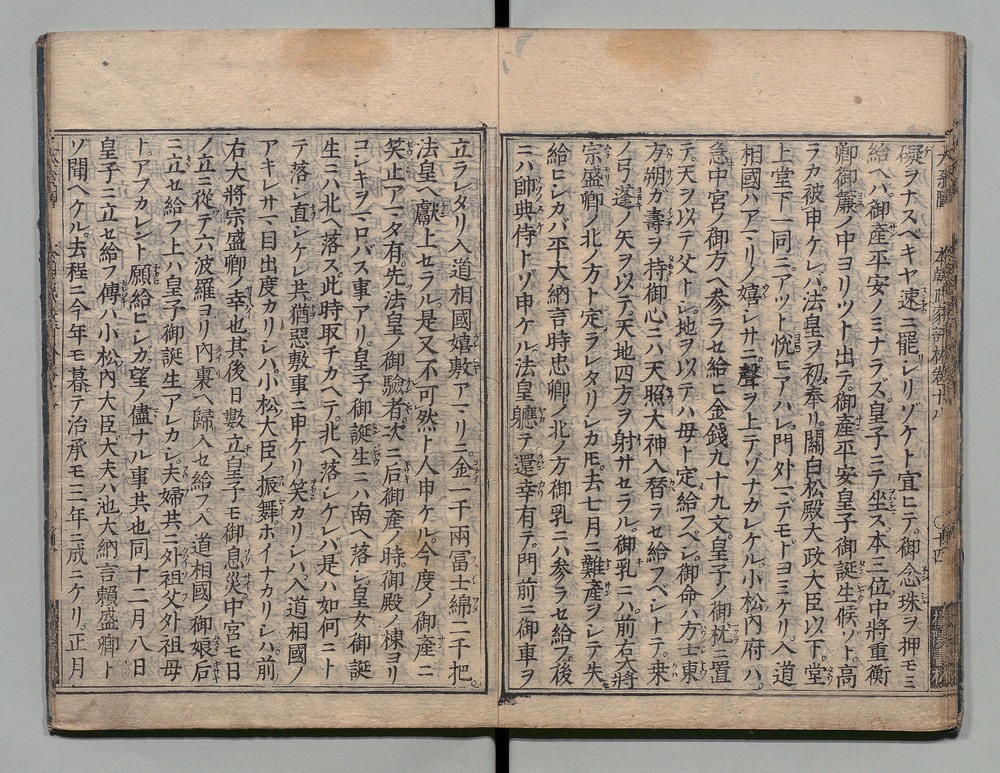 礙ヲナスベキヤ速ニ罷レリゾケト宜ヒテ。御念珠ヲ押モミ
給ヘバ御産平安ノミナラズ皇子ニテ坐ス。本三位中將重衡
卿御簾ノ中ヨリツト出テ。御産平安皇子御誕生候ゾト。高
ラカ被申ケレバ法皇ヲ初奉リ。關白松殿大政大臣以下。堂
上堂下一同ニアツト悦ビアハレ。門外マデモドヨミケリ。入道
相國ハアマリノ嬉シサニ聲ヲ上テゾナカレケル小松内府ハ。
急中宮ノ御方ヘ參ラセ給ヒ金錢九十九文。皇子ノ御枕ニ置
テ。天ヲ以テ父トシ。地ヲ以テハ母ト定給フベシ。御命ハ方士東
方朔カ壽ヲ持御心ニハ天照大神入替ラセ給フベシトテ。桒
ノ弓蓬ノ矢ヲ以テ。天地四方ヲ射サセラル。御乳ニハ前右大將
宗盛卿ノ北ノ方ト定ラレタリシカ𪜈。去七月ニ難産ヲシテ失
給ヒシカバ平大納言時忠卿ノ北ノ方御乳ニハ參ラセ給フ後
ニハ帥典侍トゾ申ケル法皇軈テ還幸有テ。門前ニ御車ヲ
立ラレタリ入道相國嬉敷アマリニ金一千兩冨士綿二千把
法皇ヘ獻上セラル。是又不可然ト人申ケル。今度ノ御産ニ
笑止アマタ有。先法皇ノ御驗者。次ニ后御産ノ時。御殿ノ棟ヨリ
コシキヲマロバス事アリ。皇子御誕生ニハ南ヘ落シ。皇女御誕
生ニハ北ヘ落ス。此時取チガヘテ。北ヘ落シケレバ。是ハ如何ニト
テ落シ直シケレ共。猶惡敷事ニ申ケリ笑カリシハ入道相國ノ
アキレサマ目出度カリシハ。小松大臣ノ振舞。ホイナカリシハ。前
右大將宗盛卿ノ幸也其後日數立皇子モ御息災。中宮モ日
ノ立ニ從テ六波羅ヨリ内裏ヘ歸入セ給フ。入道相國ノ御娘后
ニ立セ給フ上ハ皇子御誕生アレカシ。夫婦共ニ外祖父外祖母
トアフカレント願給ヒシカ。望ノ儘ナル事共也同十二月八日
皇子ニ立セ給フ傅ハ小松内大臣。大夫ハ池大納言賴盛卿ト
ゾ聞ヘケル。去程ニ今年モ暮テ治承モ三年ニ成ニケリ。正月